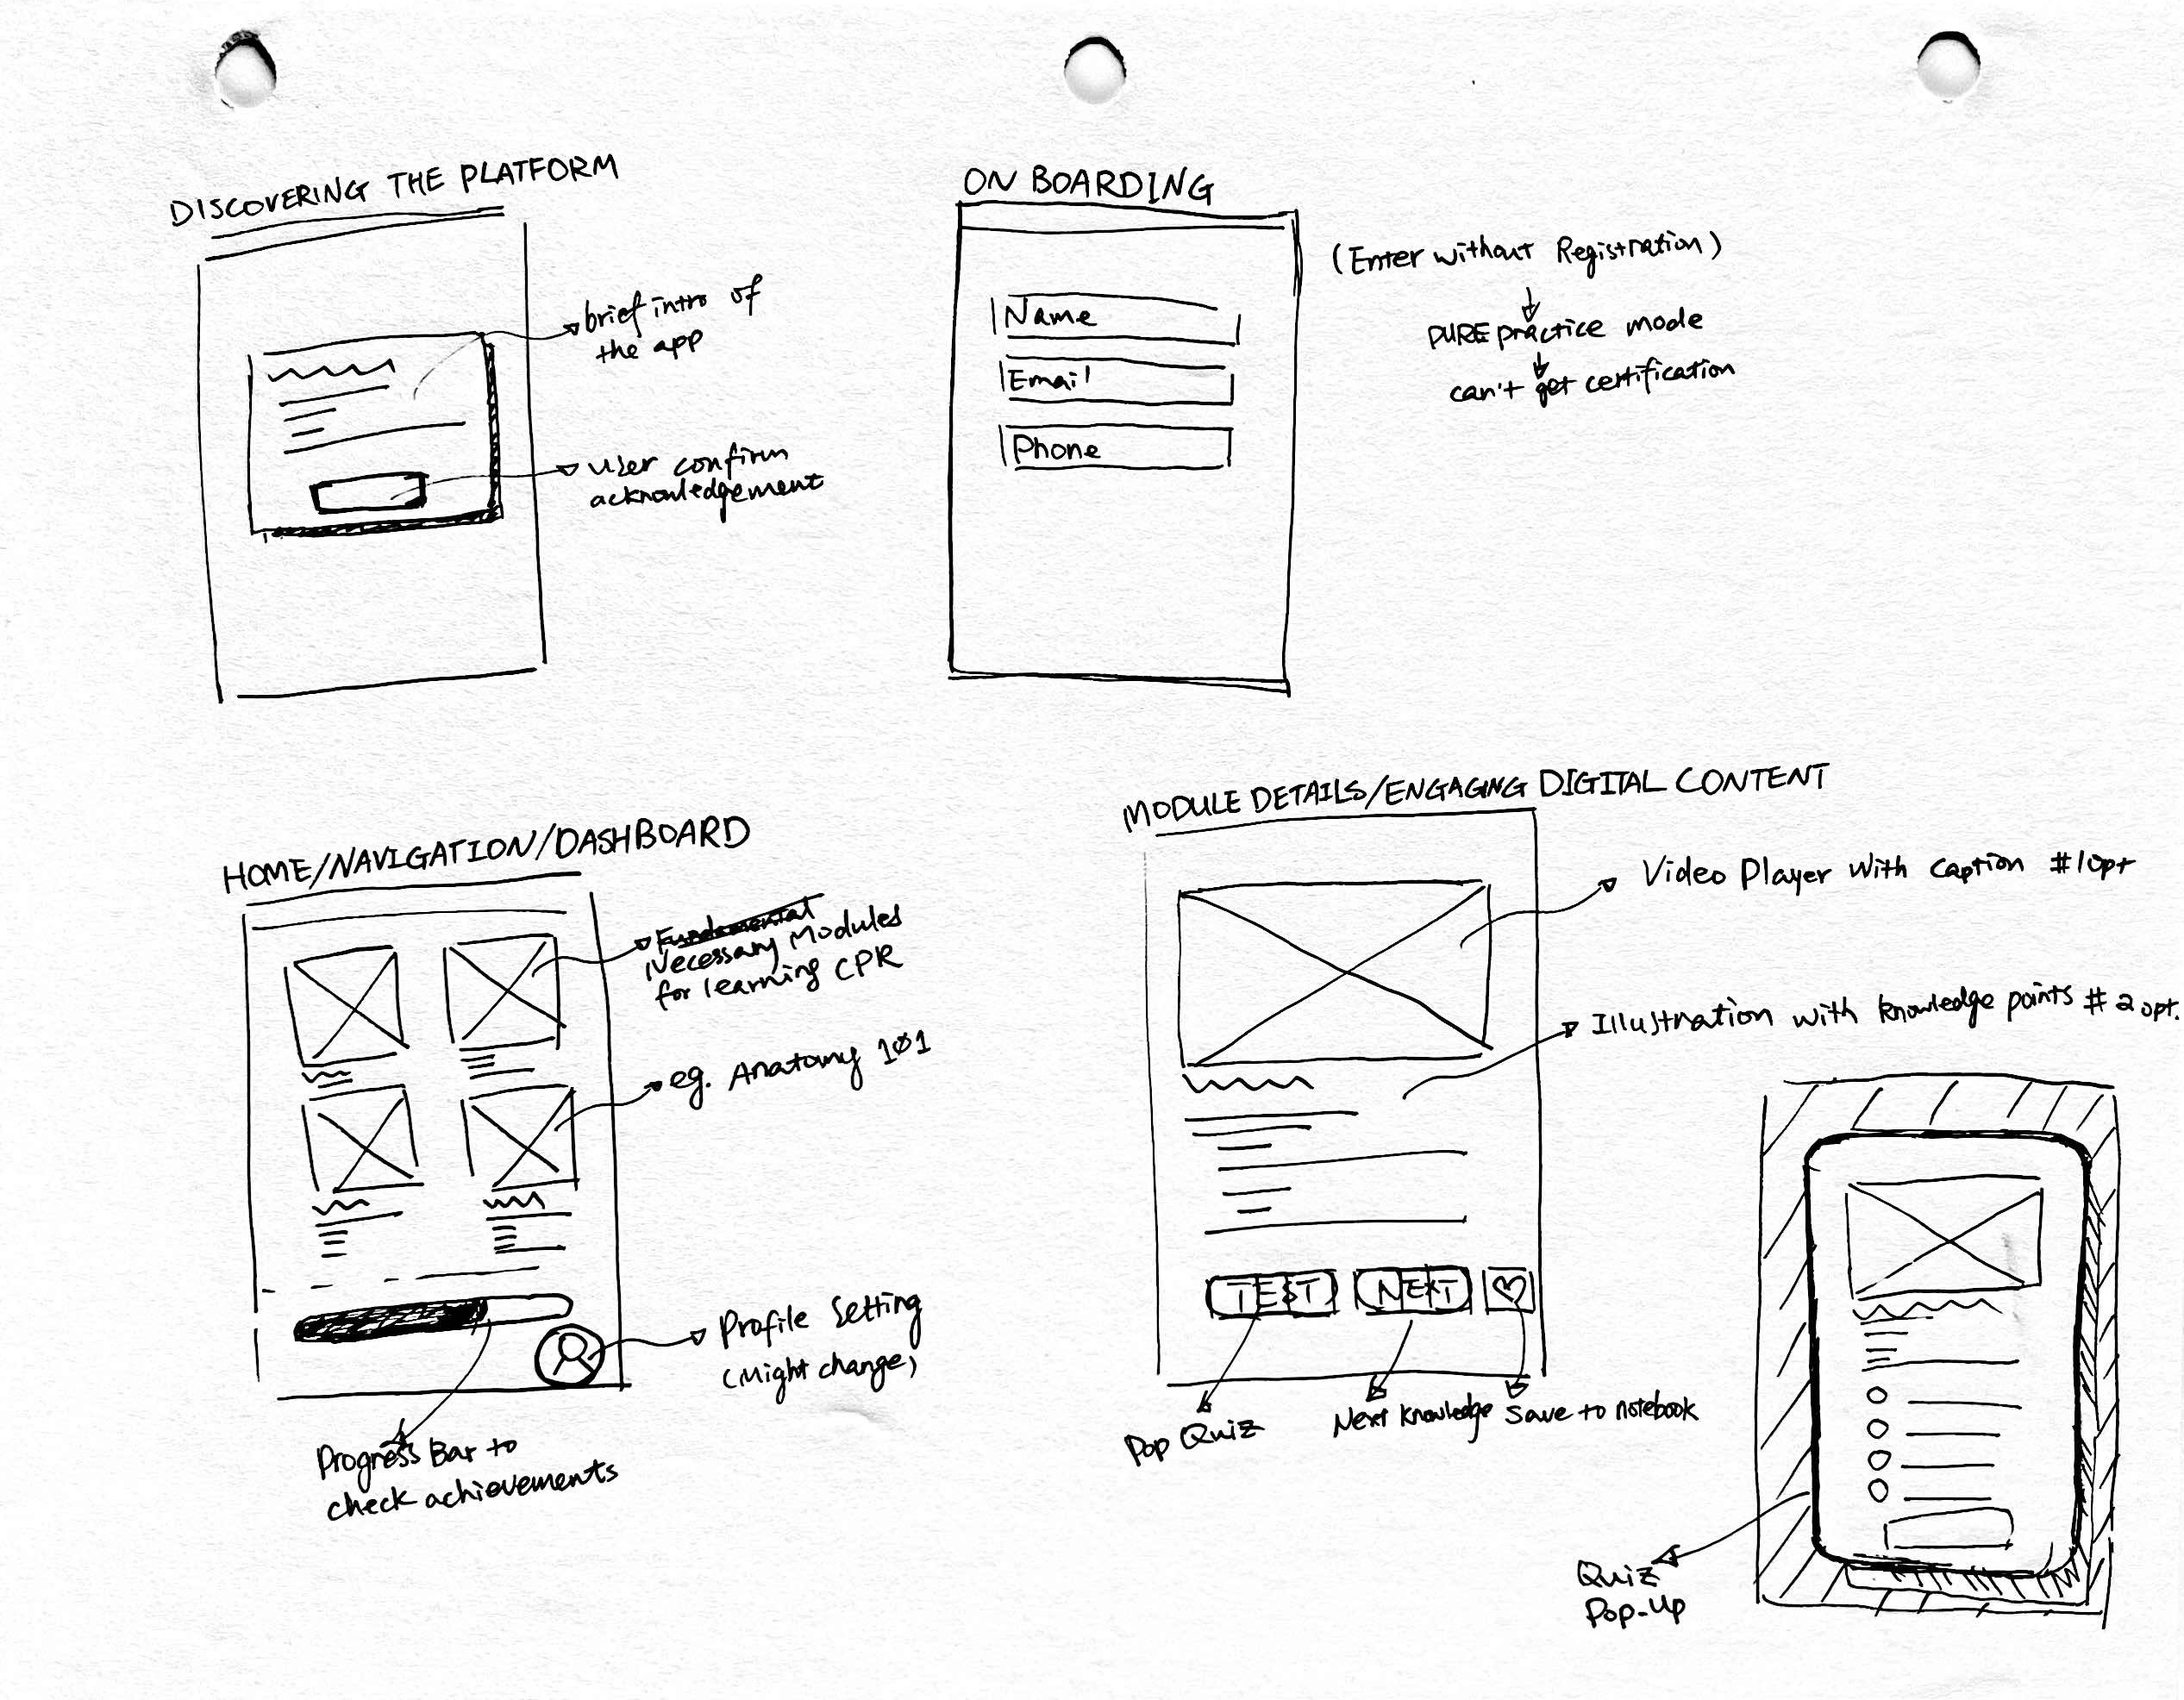 DISCOVERING THE PLATFORM
brief intro of
the app
user confirm
acknowledgement
ON BOARDING
Name
Email
Phone
(Enter without Registration)
PURE practice mode
can't get certification
HOME/NAVIGATION/DASHBOARD
Fundamental
Necessary Modules
for learning CPR
eg. Anatomy 101
Profile Setting
(Might change)
Progress Bar to
check achievements
MODULE DETAILS/ENGAGING DIGITAL CONTENT
Video Player with caption #1opt
Illustration with knowledge points #2opt.
TEST NEXT
Pop Quiz
Next knowledge
Save to notebook
Quiz
Pop-Up